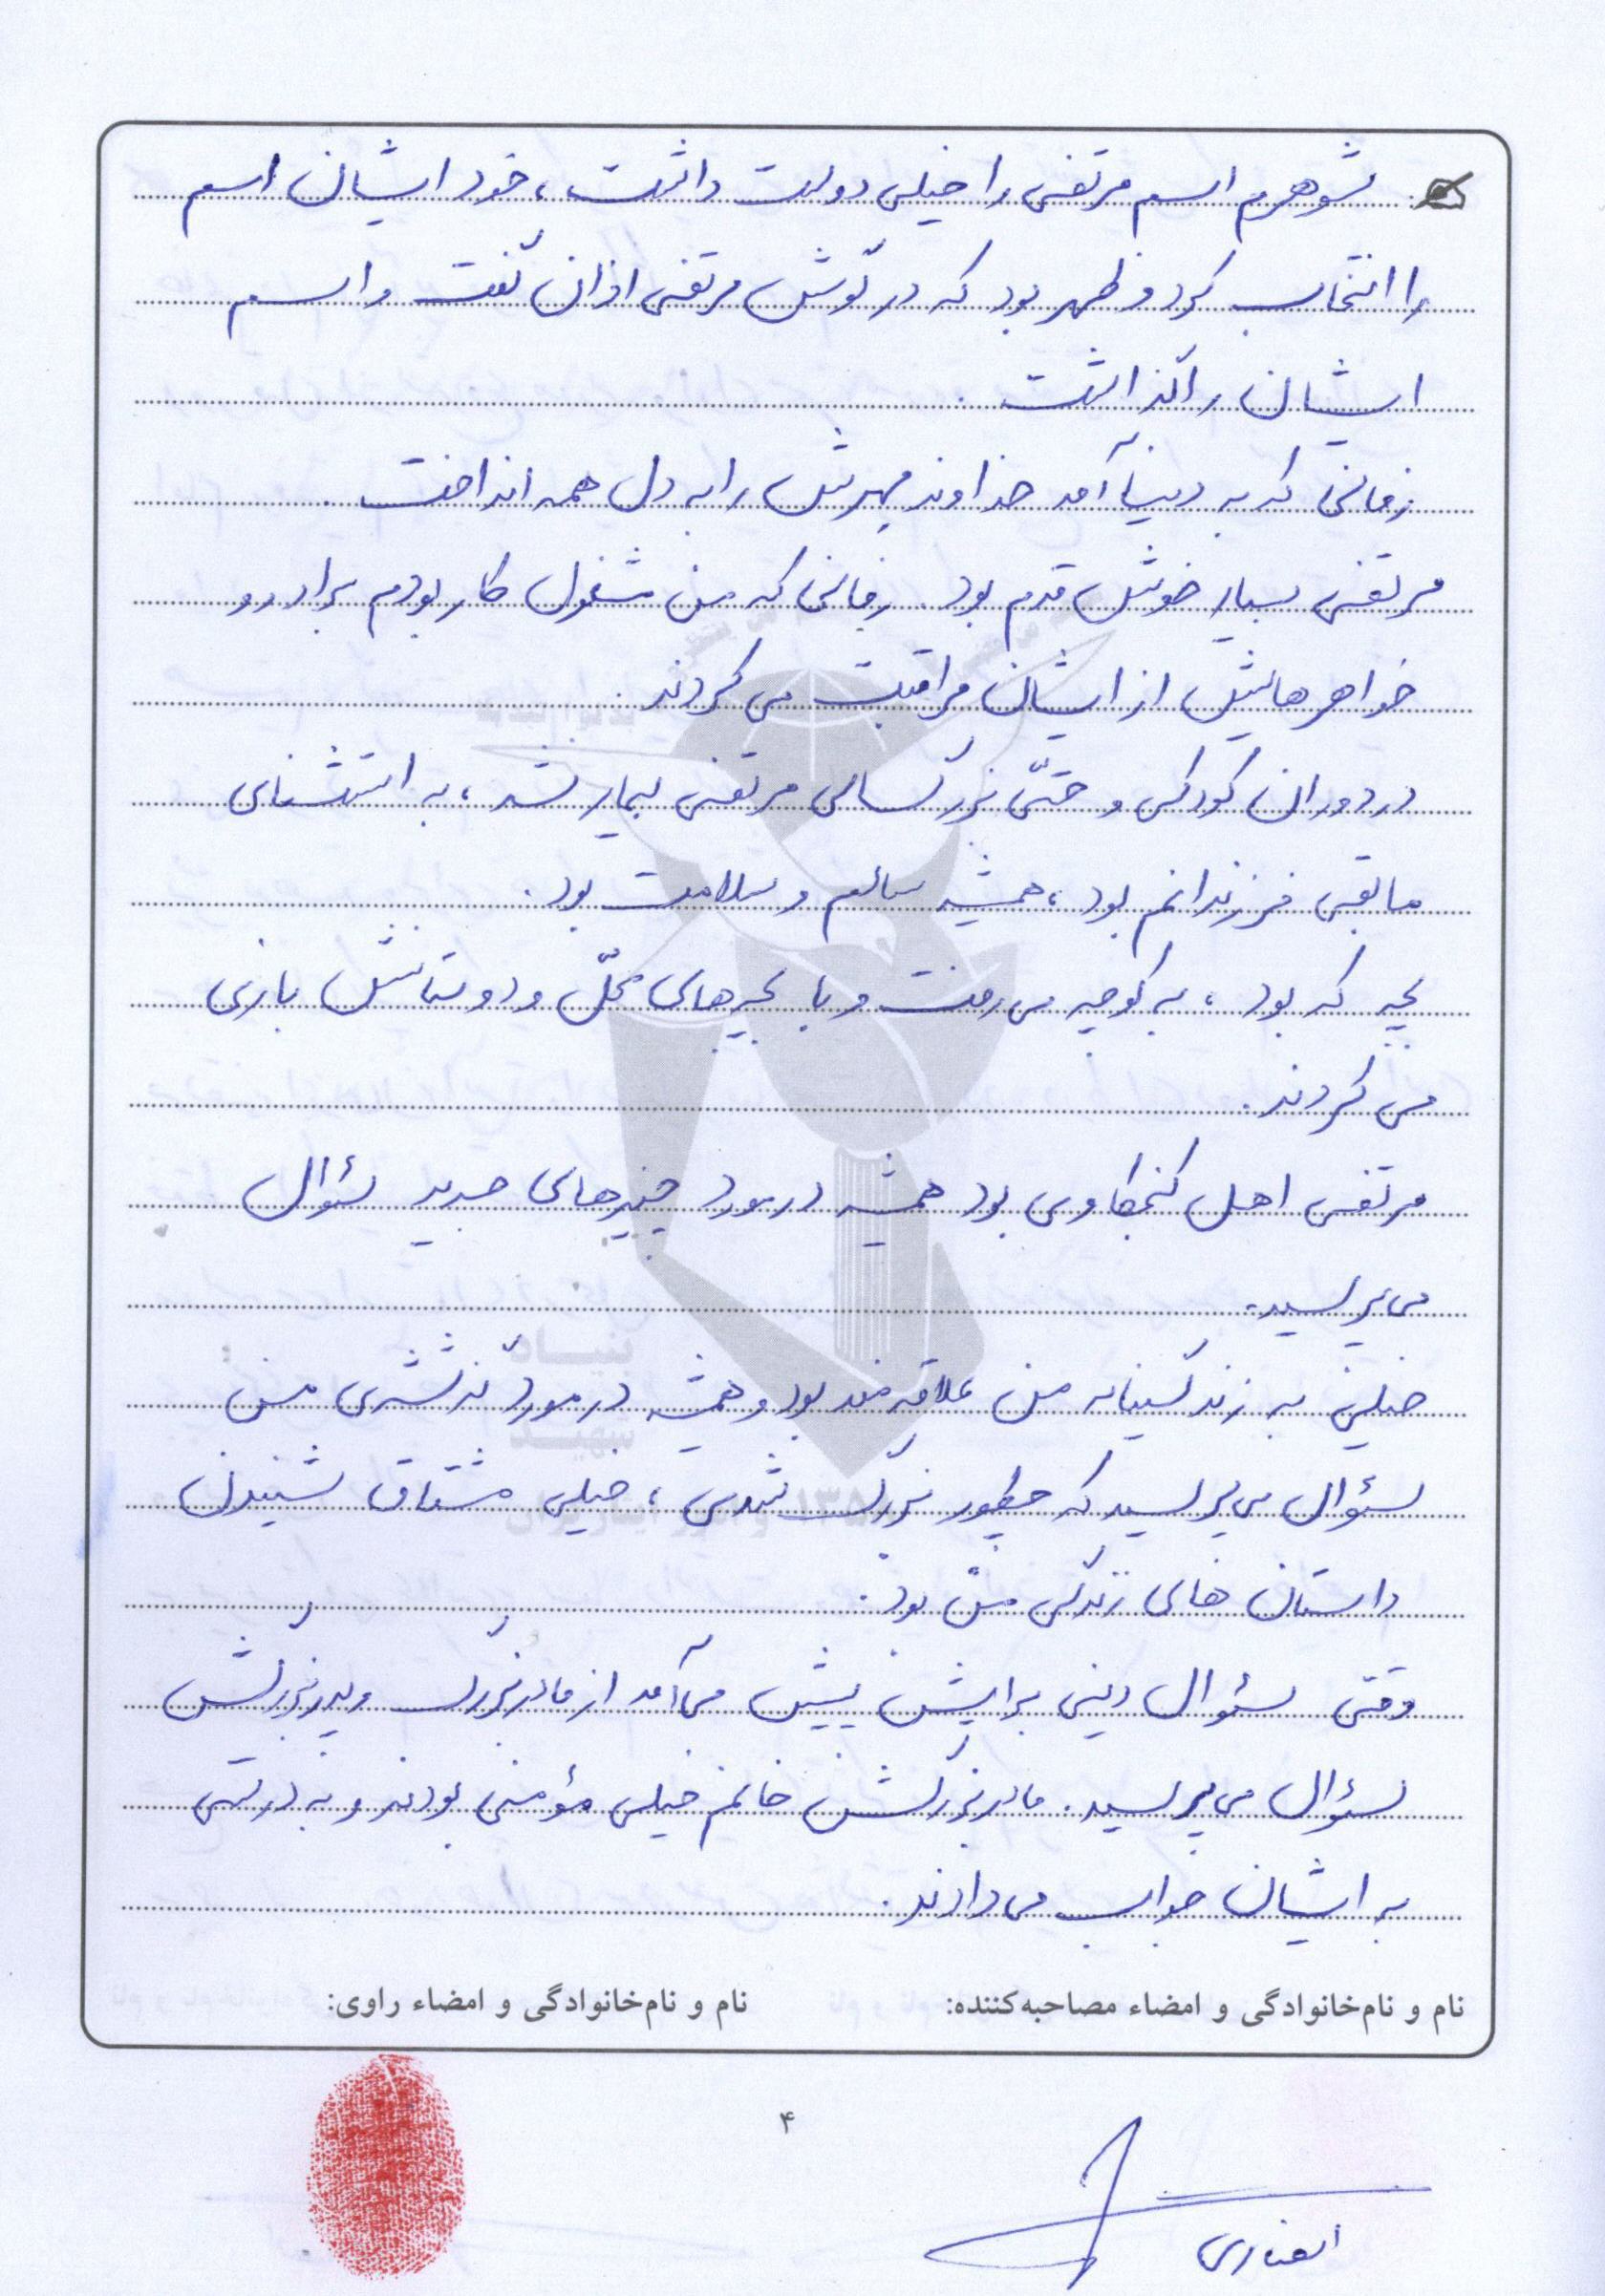 شوهرم اسم مرتضی را خیلی دوست داشت، خود ایشان اسم
را انتخاب کرد و ظهر بود که در گوش مرتضی اذان گفت و اسم
ایشان را گذاشت.
زمانی که به دنیا آمد خداوند مهرش را به دل همه انداخت.
مرتضی بسیار خوش قدم بود. زمانی که من مشغول کار بودم برادر و
خواهرهایش از ایشان مراقبت می کردند.
در دوران کودکی و حتّی بزرگسالی مرتضی بیمار نشد، به استثنای
مابقی فرزندانم بود، همیشه سالم و سلامت بود.
بچه که بود، به کوچه می رفت و با بچه های محلّ و دوستانش بازی
می کردند.
مرتضی اهل کنجکاوی بود همیشه در مورد چیزهای جدید سئوال
می پرسید.
خیلی به زندگینامه من علاقه مند بود و همیشه در مورد گذشته ی من
سئوال می پرسید که چطور بزرگ شدی، خیلی مشتاق شنیدن
داستان های زندگی من بود.
وقتی سئوال دینی برایش پیش می آمد از مادربزرگ و پدربزرگش
سئوال می پرسید. مادربزرگش خانم خیلی مؤمنی بودند و به درستی
به ایشان جواب می دادند.
نام و نام‌خانوادگی و امضاء مصاحبه‌کننده: نام و نام‌خانوادگی و امضاء راوی:
۴
انصاری